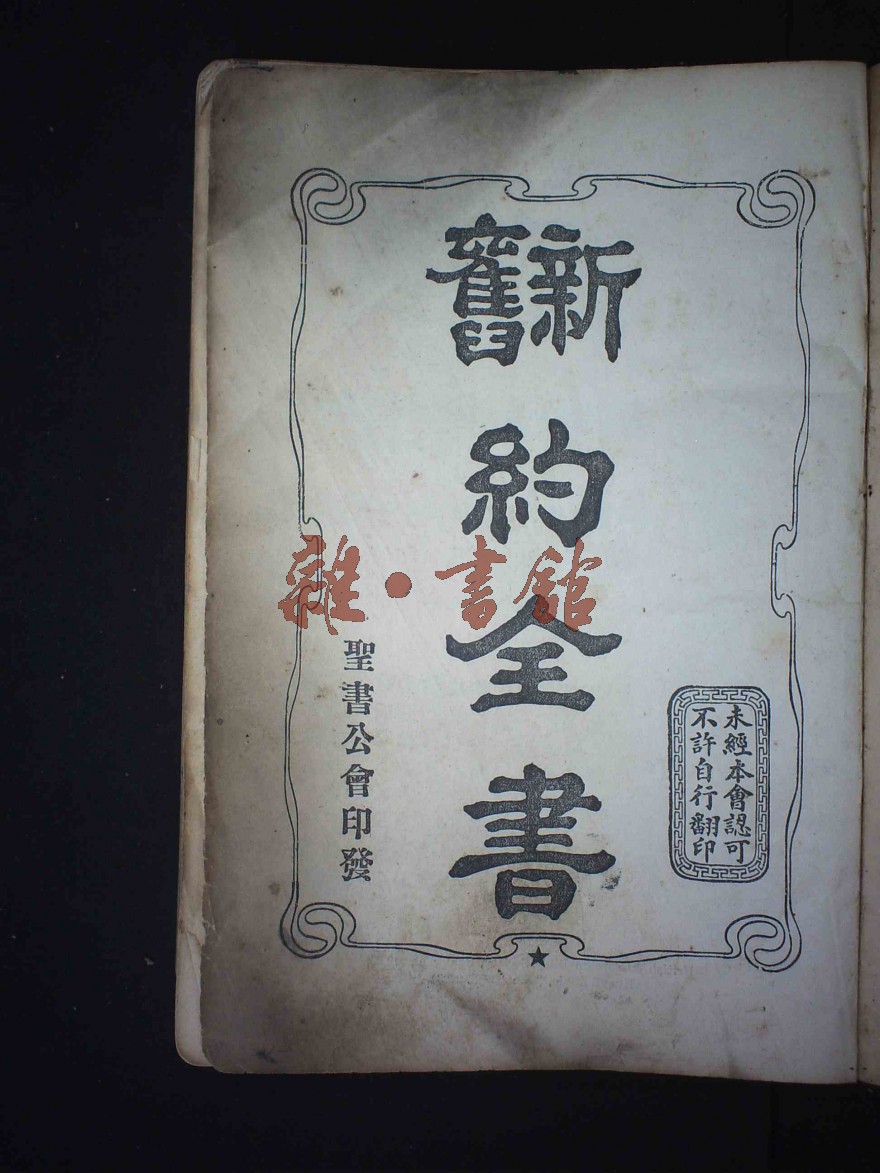 新舊
約全書
未經本會認可
不許自行翻印
聖書公會印發
雜·書館